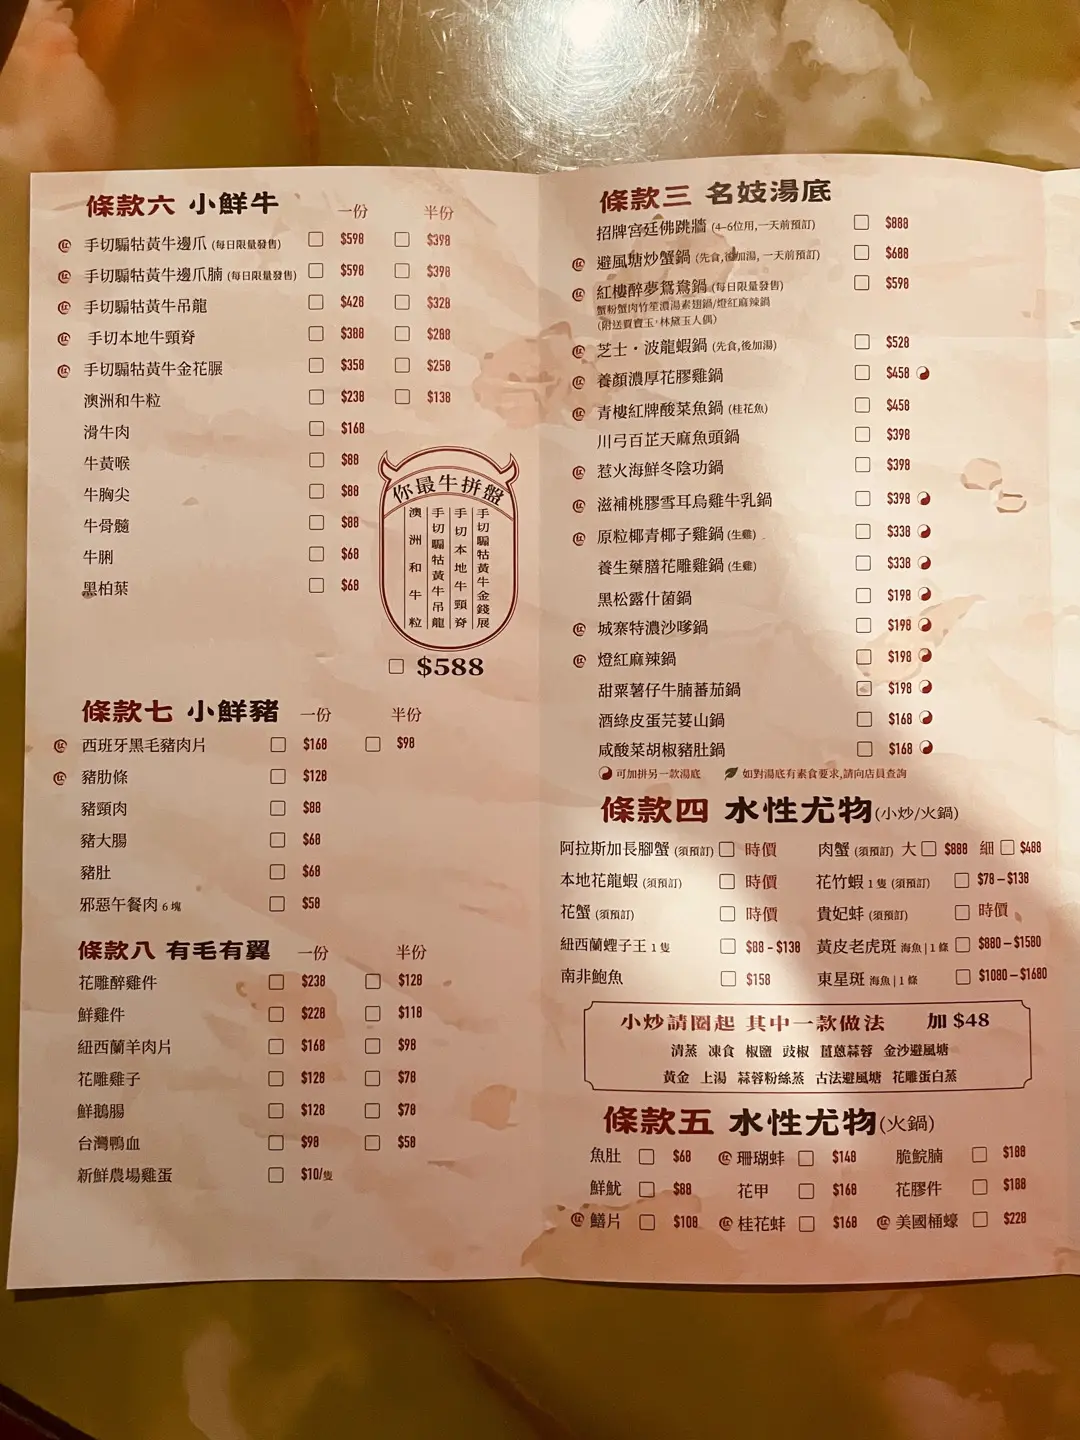 條款六 小鮮牛 一份 半份
手切騸牯黃牛邊爪 (每日限量發售) $598 $398
手切騸牯黃牛邊爪腩 (每日限量發售) $598 $398
手切騸牯黃牛吊龍 $428 $328
手切本地牛頸脊 $388 $288
手切騸牯黃牛金花𦟌 $358 $258
澳洲和牛粒 $238 $138
滑牛肉 $168
牛黃喉 $88
牛胸尖 $88
牛骨髓 $88
牛脷 $68
黑柏葉 $68
你最牛拼盤
手切騸牯黃牛金錢展
手切本地牛頸脊
手切騸牯黃牛吊龍
澳洲和牛粒
$588
條款七 小鮮豬 一份 半份
西班牙黑毛豬肉片 $168 $98
豬肋條 $128
豬頸肉 $88
豬大腸 $68
豬肚 $68
邪惡午餐肉 6 塊 $58
條款八 有毛有翼 一份 半份
花雕醉雞件 $238 $128
鮮雞件 $228 $118
紐西蘭羊肉片 $168 $98
花雕雞子 $128 $78
鮮鵝腸 $128 $78
台灣鴨血 $98 $58
新鮮農場雞蛋 $10/隻
條款三 名妓湯底
招牌宮廷佛跳牆 (4–6位用,一天前預訂) $888
避風塘炒蟹鍋 (先食,後加湯, 一天前預訂) $688
紅樓醉夢鴛鴦鍋 (每日限量發售) $598
蟹粉蟹肉竹笙濃湯素翅鍋/燈紅麻辣鍋
(附送賈寶玉·林黛玉人偶)
芝士・波龍蝦鍋 (先食,後加湯) $528
養顏濃厚花膠雞鍋 $458
青樓紅牌酸菜魚鍋 (桂花魚) $458
川弓百芷天麻魚頭鍋 $398
惹火海鮮冬陰功鍋 $398
滋補桃膠雪耳烏雞牛乳鍋 $398
原粒椰青椰子雞鍋 (生雞) $338
養生藥膳花雕雞鍋 (生雞) $338
黑松露什菌鍋 $198
城寨特濃沙嗲鍋 $198
燈紅麻辣鍋 $198
甜粟薯仔牛腩蕃茄鍋 $198
酒綠皮蛋芫荽山鍋 $168
咸酸菜胡椒豬肚鍋 $168
可加拼另一款湯底 如對湯底有素食要求,請向店員查詢
條款四 水性尤物(小炒/火鍋)
阿拉斯加長腳蟹 (須預訂) 時價 肉蟹 (須預訂) 大 $888 細 $488
本地花龍蝦 (須預訂) 時價 花竹蝦 1 隻 (須預訂) $78–$138
花蟹 (須預訂) 時價 貴妃蚌 (須預訂) 時價
紐西蘭蟶子王 1 隻 $88 – $138 黃皮老虎斑 海魚 | 1 條 $880–$1580
南非鮑魚 $158 東星斑 海魚 | 1 條 $1080–$1680
小炒請圈起 其中一款做法 加 $48
清蒸 凍食 椒鹽 豉椒 薑蔥蒜蓉 金沙避風塘
黃金 上湯 蒜蓉粉絲蒸 古法避風塘 花雕蛋白蒸
條款五 水性尤物(火鍋)
魚肚 $68 珊瑚蚌 $148 脆鯇腩 $188
鮮魷 $88 花甲 $168 花膠件 $188
鱔片 $108 桂花蚌 $168 美國桶蠔 $228